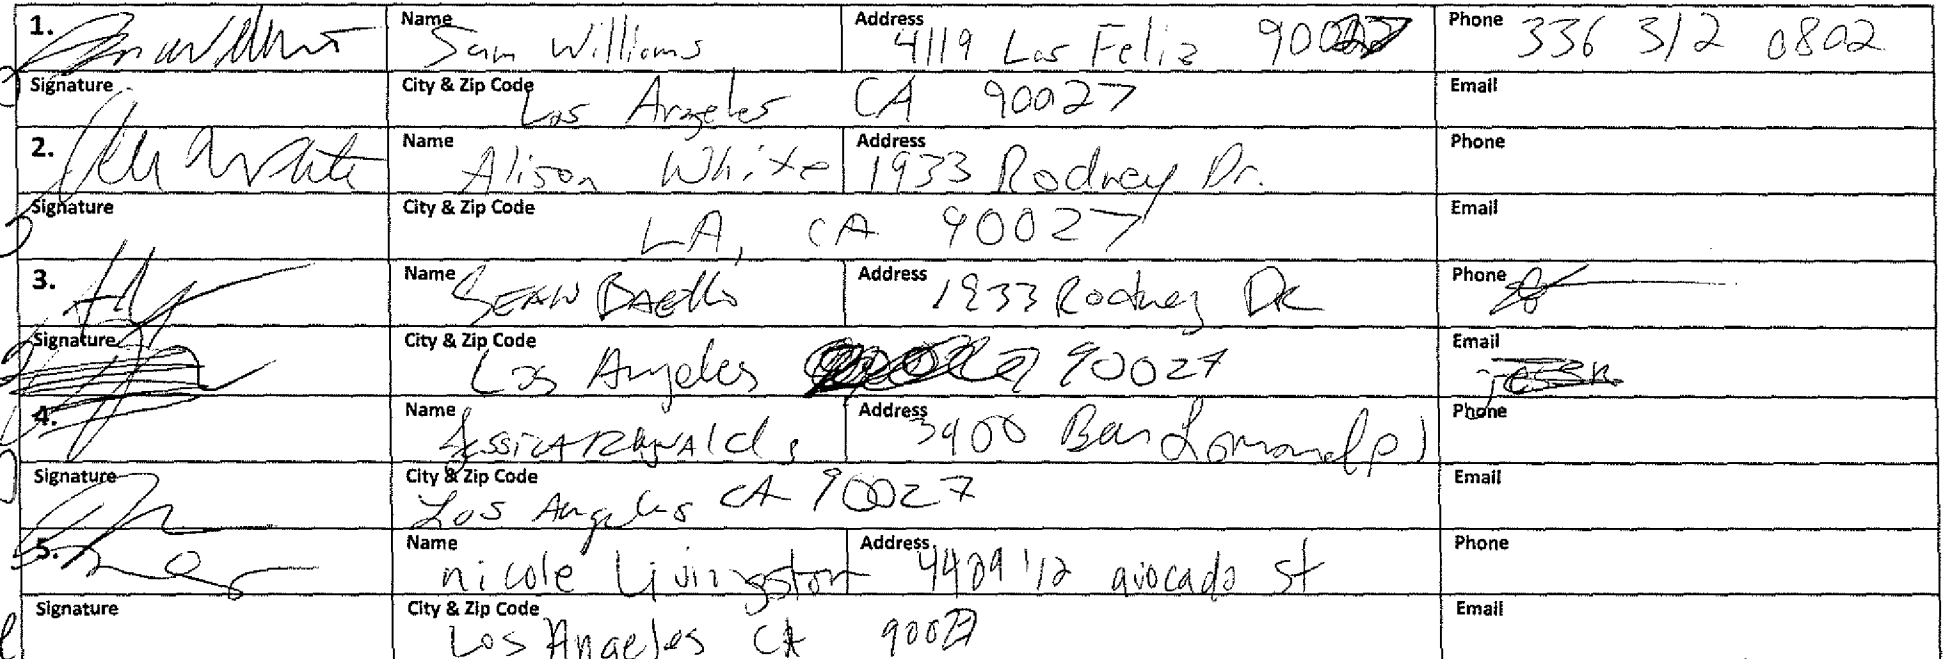 1. Name Sam Williams Address 4119 Los Feliz 90027 Phone 336 312 0802
Signature City & Zip Code Los Angeles CA 90027 Email
2. Name Alison White Address 1933 Rodney Dr. Phone
Signature City & Zip Code LA, CA 90027 Email
3. Name SEAN Address 1933 Rodney DR Phone
Signature City & Zip Code Los Angeles 90027 Email
4. Name Jessica Address 3900 Ben Lomond pl Phone
Signature City & Zip Code Los Angeles CA 90027 Email
5. Name nicole Livingston Address 4409 1/2 avocado st Phone
Signature City & Zip Code Los Angeles CA 90027 Email